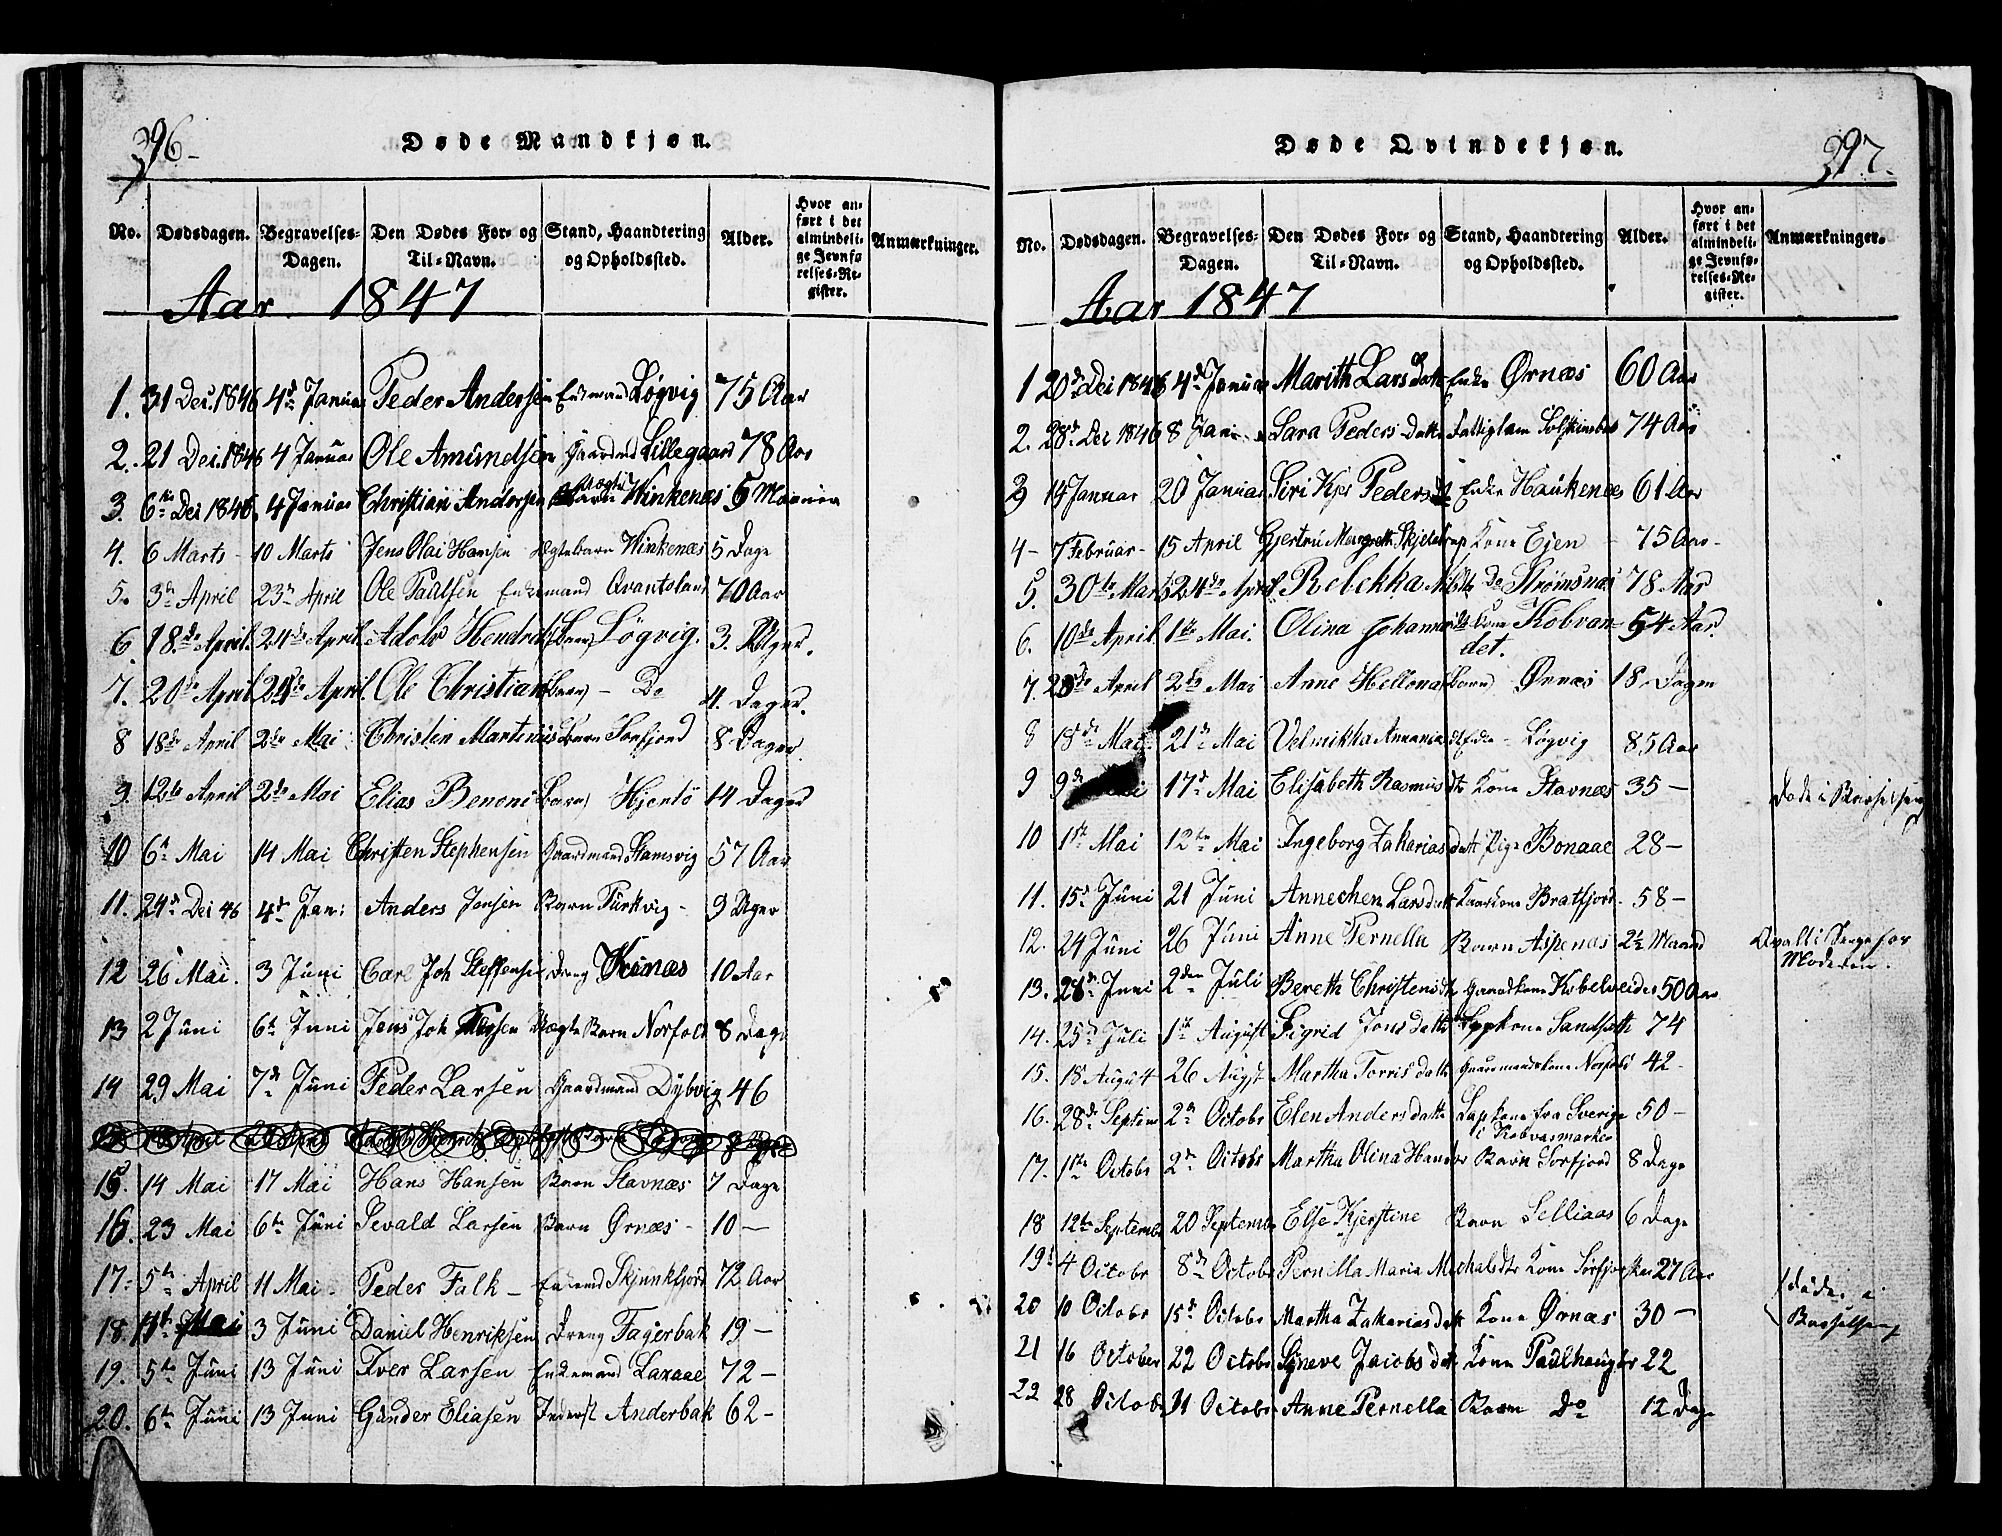 396.
Døde Mandkjøn.
No. Dødsdagen. Begravelses-Dagen. Den Dødes For- og Til-Navn. Stand, Haandtering og Opholdssted. Alder. Hvor anført i det almindelige Jevnførelses-Register. Anmærkninger.
Aar 1847
1. 31 Dec. 1846 4de Januar Peder Andersen Enkemand Løgvig 75 Aar
2. 21 Dec. 1846 4 Januar Ole Amundsen Gaardmd Lillegaard 78 Aar
3. 6te Dec 1846 4 Januar Christian Andersen Winkenæs 5 Maaneder
4. 6 Marts 10 Marts Jens Olai Hansen Ægtebarn Winkenæs 5 Dage
5. 3de April 23de April Ole Paulsen Enkemand Qvantoland 70 Aar
6. 18de April 24de April Adolv Hendrik (Barn) Løgvig. 3. Uger.
7. 20de April 24de April Ole Christian (Barn) - Do 4. Dager.
8 18de April 2den Mai Christen Martinus Barn Sørfjord 8 Dager
9. 12te April 2den Mai Elias Benoni (Barn) Hjertø 14 Dager
10 6te Mai 14 Mai Christen Stephensen Gaardmand Stamsvig 57 Aar
11. 24de Dec 46 4de Jan: Anders Jensen Barn Turkvig - 9 Uger
12 26 Mai. 3 Juni Carl Joh Steffensen Dreng 10 Aar
13 2 Juni 6te Juni Jens Joh Ægte Barn Norfold 8 Dage
14 29 Mai 7de Juni Peder Larsen Gaardmand Dybvig 46
15 14 Mai 17 Mai Hans Hansen Barn Stavnæs 7 Dage
16. 23 Mai 6te Juni Sevald Larsen Barn Ørnæs - 10 —
17. 5te April 11 Mai - Peder Falk - Enkemd Skjunkfjord 72 Aar
18. Mai 3 Juni Daniel Henriksen Dreng Fagerbak 19 —
19. 5te Juni 13 Juni Iver Larsen Enkemand Laxaae 72 —
20. 6te Juni 13 Juni Gunder Eliasen Inderst Anderbak 62 -
397.
Døde Qvindekjøn.
No. Dødsdagen. Begravelses-Dagen. Den Dødes For- og Til-Navn. Stand, Haandtering og Opholdssted. Alder. Hvor anført i det almindelige Jevnførelses-Register. Anmærkninger.
Aar 1847
1 20de Dec 1846 4de Januar Marith Larsdatt Enke Ørnæs 60 Aar
2. 28de Dec 1846 8 Jan Lara Peders Datt Fattiglem 74 Aar
3 14 Januar 20 Januar Siri Kjer Pedersdt Enke Haukenes 61 Aar
4 - 7 Februar - 15 April Gjertru Margreth Skjelderup Kone Ejen - 75 Aar -
5. 30te Marts 24de April Rebekka Do Strømsnæs 78 Aar
6. 10de April 1ste Mai. Olina Johannesdtr Kone Kobvandet. 54 Aar.
7. 28de April 2den Mai Anne Hellena (Barn) Ørnæs 18. Dagen
8 18de Mai 21de Mai Velmikka Annaniasdt Enke - Løgvig 85 Aar
9 9de Mai 17de Mai Elisabeth Rasmusdtr Kone Stavnæs 35 — Døde i Barselseng
10 1ste Mai 12te Mai Ingeborg Zakariasdatt Pige Bonaae 28 —
11. 15de Juni 21 Juni Annechen Larsdatt Gaardkone Bratfjord - 58 —
12. 24 Juni 26 Juni Anne Pernella Barn Aspenæs 2½ Maaned Qvalt i Senge hos Moderen.
13. 28de Juni 2den Juli Bereth Christensdtr Gaardkone Kobelveidet 50 Aar
14. 25de Juli 1ste August Sigrid Jonsdatt Sandseth 74
15. 18 August 26 August Martha Torrisdatt Gaardmandskone Norfold 42 -
16. 28de Septem 2den Octobr Elen Andersdatt Lapkone fra Sverige i Kobvasmarken 50 —
17. 1ste Octobr 2den Octobr Martha Olina Hansdtr Barn Sørfjord 8 Dage
18 12te Septembr 20 Septembr Else Kjerstine Barn Selliaas 6 Dage
19 4 Octobr 8de Octobr Pernilla Maria Michalsdtr Kone Sørfjord 27 Aar
20 10 Octobr 15de Octobr Martha Zakariasdatt Kone Ørnæs 30 — døde i Barselseng
21 16 October 22 Octobr Synneve Jacobsdatt Kone Paalhauger 22
22 28 Octobr 31 Octobr Anne Pernella Barn Do 12 Dage